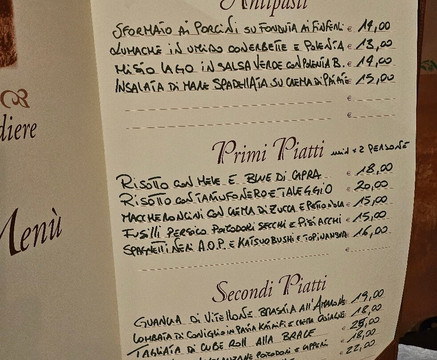 Antipasti
SFORMATO AI PORCINI SU FONDUTA AI FINFERLI € 14,00
LUMACHE IN UMIDO CON ERBETTE E POLENTA € 13,00
MISTO LAGO IN SALSA VERDE CON POLENTA B. € 14,00
INSALATA DI MARE SPADELLATA SU CREMA DI PATATE € 15,00
€
€
diere
Menù
Primi Piatti min. x 2 PERSONE
RISOTTO CON MELE E BLUE DI CAPRA € 18,00
RISOTTO CON TARTUFO NERO E TALEGGIO € 20,00
MACCHERONCINI CON CREMA DI ZUCCA E € 15,00
FUSILLI PERSICO POMODORI SECCHI E PISTACCHI € 15,00
SPAGHETTI NERI A.O.P. E KATSUOBUSHI E TOPINAMBUR € 16,00
€
Secondi Piatti
GUANCIA DI VITELLONE BRASATA ALL' € 19,00
LOMBATA DI CONIGLIO IN PASTA E CREMA € 18,00
TAGLIATA DI CUBE ROLL ALLA BRACE € 25,00
POMODORI E CAPPERI € 18,00
€ 22,00